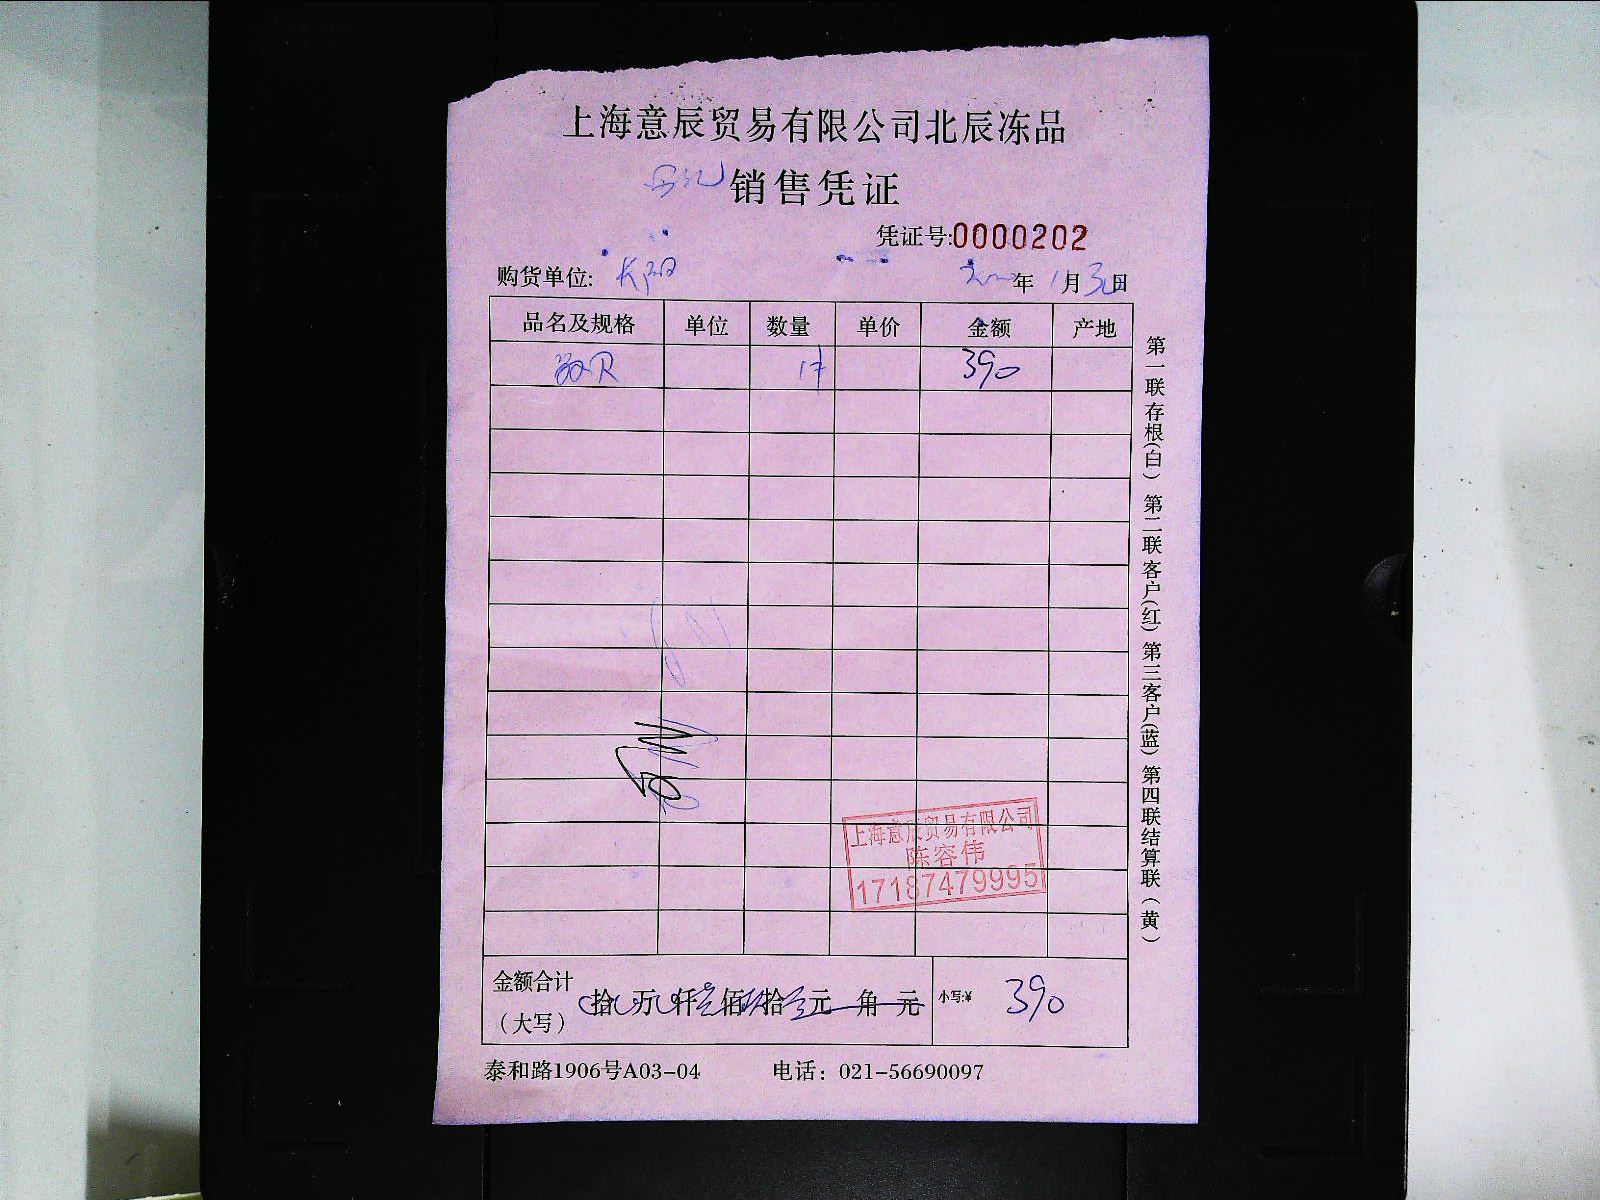 上海意辰贸易有限公司北辰冻品
销售凭证
凭证号:0000202
购货单位: 长阳 年 1月30日
品名及规格 单位 数量 单价 金额 产地
1件 390
第一联存根(白) 第二联客户(红) 第三客户(蓝) 第四联结算联(黄)
上海意辰贸易有限公司
陈容伟
17187479995
金额合计
(大写) 拾 万 仟 佰 拾 元 角 元 小写:¥ 390
泰和路1906号A03-04 电话：021-56690097